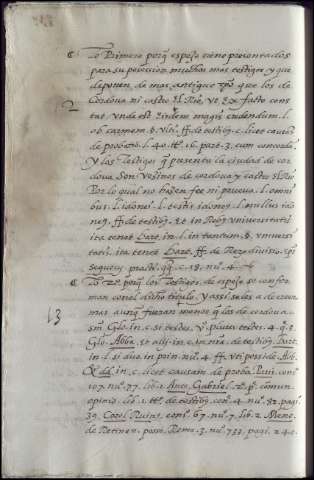 Lo Primero porq̃ espejo tiene presentados
para su possession muchos mas testigos y que
deponen de mas antiguo tpõ que los de
Cordoua ni castro el Rio, ve ex facto cons
tat. vnde est eisdem magis credendum. l.
ob carmem. §. vlti. ff. de testibꝰ. c. licet causã
de probatio. l. 40. tt.º 16. part. 3. cum concorda.
2
Y los Testigos q̃ presenta la ciudad de cor
doua son vezinos de cordoua y castro el Rio
Por lo qual no hazen fee ni prueua. l. omni
bus. l. idonei. c. testis idoneꝰ. l. nullus ido
neꝰ. ff. de testibꝰ. et in Rebꝰ vniuersitatis
ita tenet Bar. in. l. in tantum. §. vniuer
satis. ita tenet Bar. ff. de Rerũ diuisio.
c. 18. nu. 4.
Lo 2.º porq̃ los Testigos de espejo se confor
man con el dicho titulo, y assi se les a de creer
mas aunq̃ fueran menos q̃ los de cordoua.
13
Glo. in. c. si testes. 4. q. 3.
Glo. Abba. de testibꝰ. Bart.
in. l. si duo. in prin. nu. 4. ff. vti posside.
in. c. licet causam. de proba. cons.
107. nu. 27. lib. 1. Anto. Gabriel. comun.
opinio. lib. 1. tt.º de testibꝰ. con. 4. nu. 82. pagi.
39. Carol. Ruin. cons. 67. nu. 7. lib. 2. Meno.
de Retinen. poss. Reme. 3. nu. 753. pagi. 240.